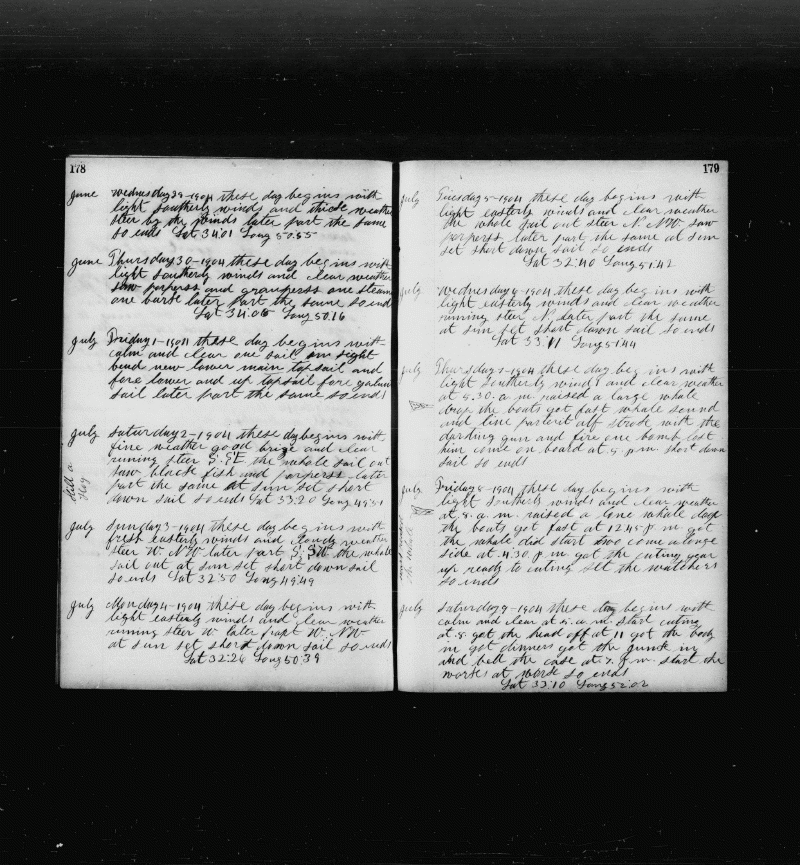 178
June Wednesday 29-1904 these day begins with
light Southerly winds and thick weather
steer by the winds later part the same
so ends Lat 34.01 Long 50.55
June Thursday 30-1904 these day begins with
light Southerly winds and clear weather
saw porperss and grampersss one steam
one bark later part the same so ends
Lat 34.06 Long 50.16
July Friday 1-1904 these day begins with
calm and clear one sail in sight
bend new lower main topsail and
fore lower and up topsail fore
sail later part the same so ends
July Saturday 2-1904 these day begins with
fine weather good brige and clear
runing steer S.SE the whole sail out
saw black fish and porperss later
part the same at sun set short
down sail so ends Lat 33.20 Long 49.51
Kill a
Hog
July Sunday 3-1904 these day begins with
fresh easterly winds and cloudy weather
steer W. NW later part S. SW the whole
sail out at sun set short down sail
so ends Lat 32.50 Long 49.49
July Monday 4-1904 these day begins with
light easterly winds and clear weather
runing steer W later prapt W. NW
at sun set short down sail so ends
Lat 32.26 Long 50.39
179
July Tuesday 5-1904 these day begins with
light easterly winds and clear weather
the whole sail out steer N. NW saw
porperss later part the same at sun
set short down sail so ends
Lat 32.40 Long 51.42
July Wednesday 6-1904 these day begins with
light easterly winds and clear weather
runing steer N. later part the same
at sun set short down sail so ends
Lat 33.11 Long 51.44
July Thursday 7-1904 these day begins with
light Southerly winds and clear weather
at 5.30 a m raised a large whale
drop the boats got fast whale sound
and line parted off strock with the
darting gun and fire one bomb lost
him come on board at 5 p m short down
sail so ends
July Friday 8-1904 these day begins with
light Southerly winds and clear weather
at 8 a m raised a lone whale drop
the boats got fast at 12.45 p m got
the whale did start two come alonge
side at 4.30 p m got the cuting gear
up ready to cuting set the watchers
so ends
the whale
July Saturday 9-1904 these day begins with
calm and clear at 5 a m start cuting
at 8 got the head off at 11 got the body
in got dinners got the gunk in
and bell the case at 7 p m start the
works at work so ends
Lat 33.10 Long 52.02